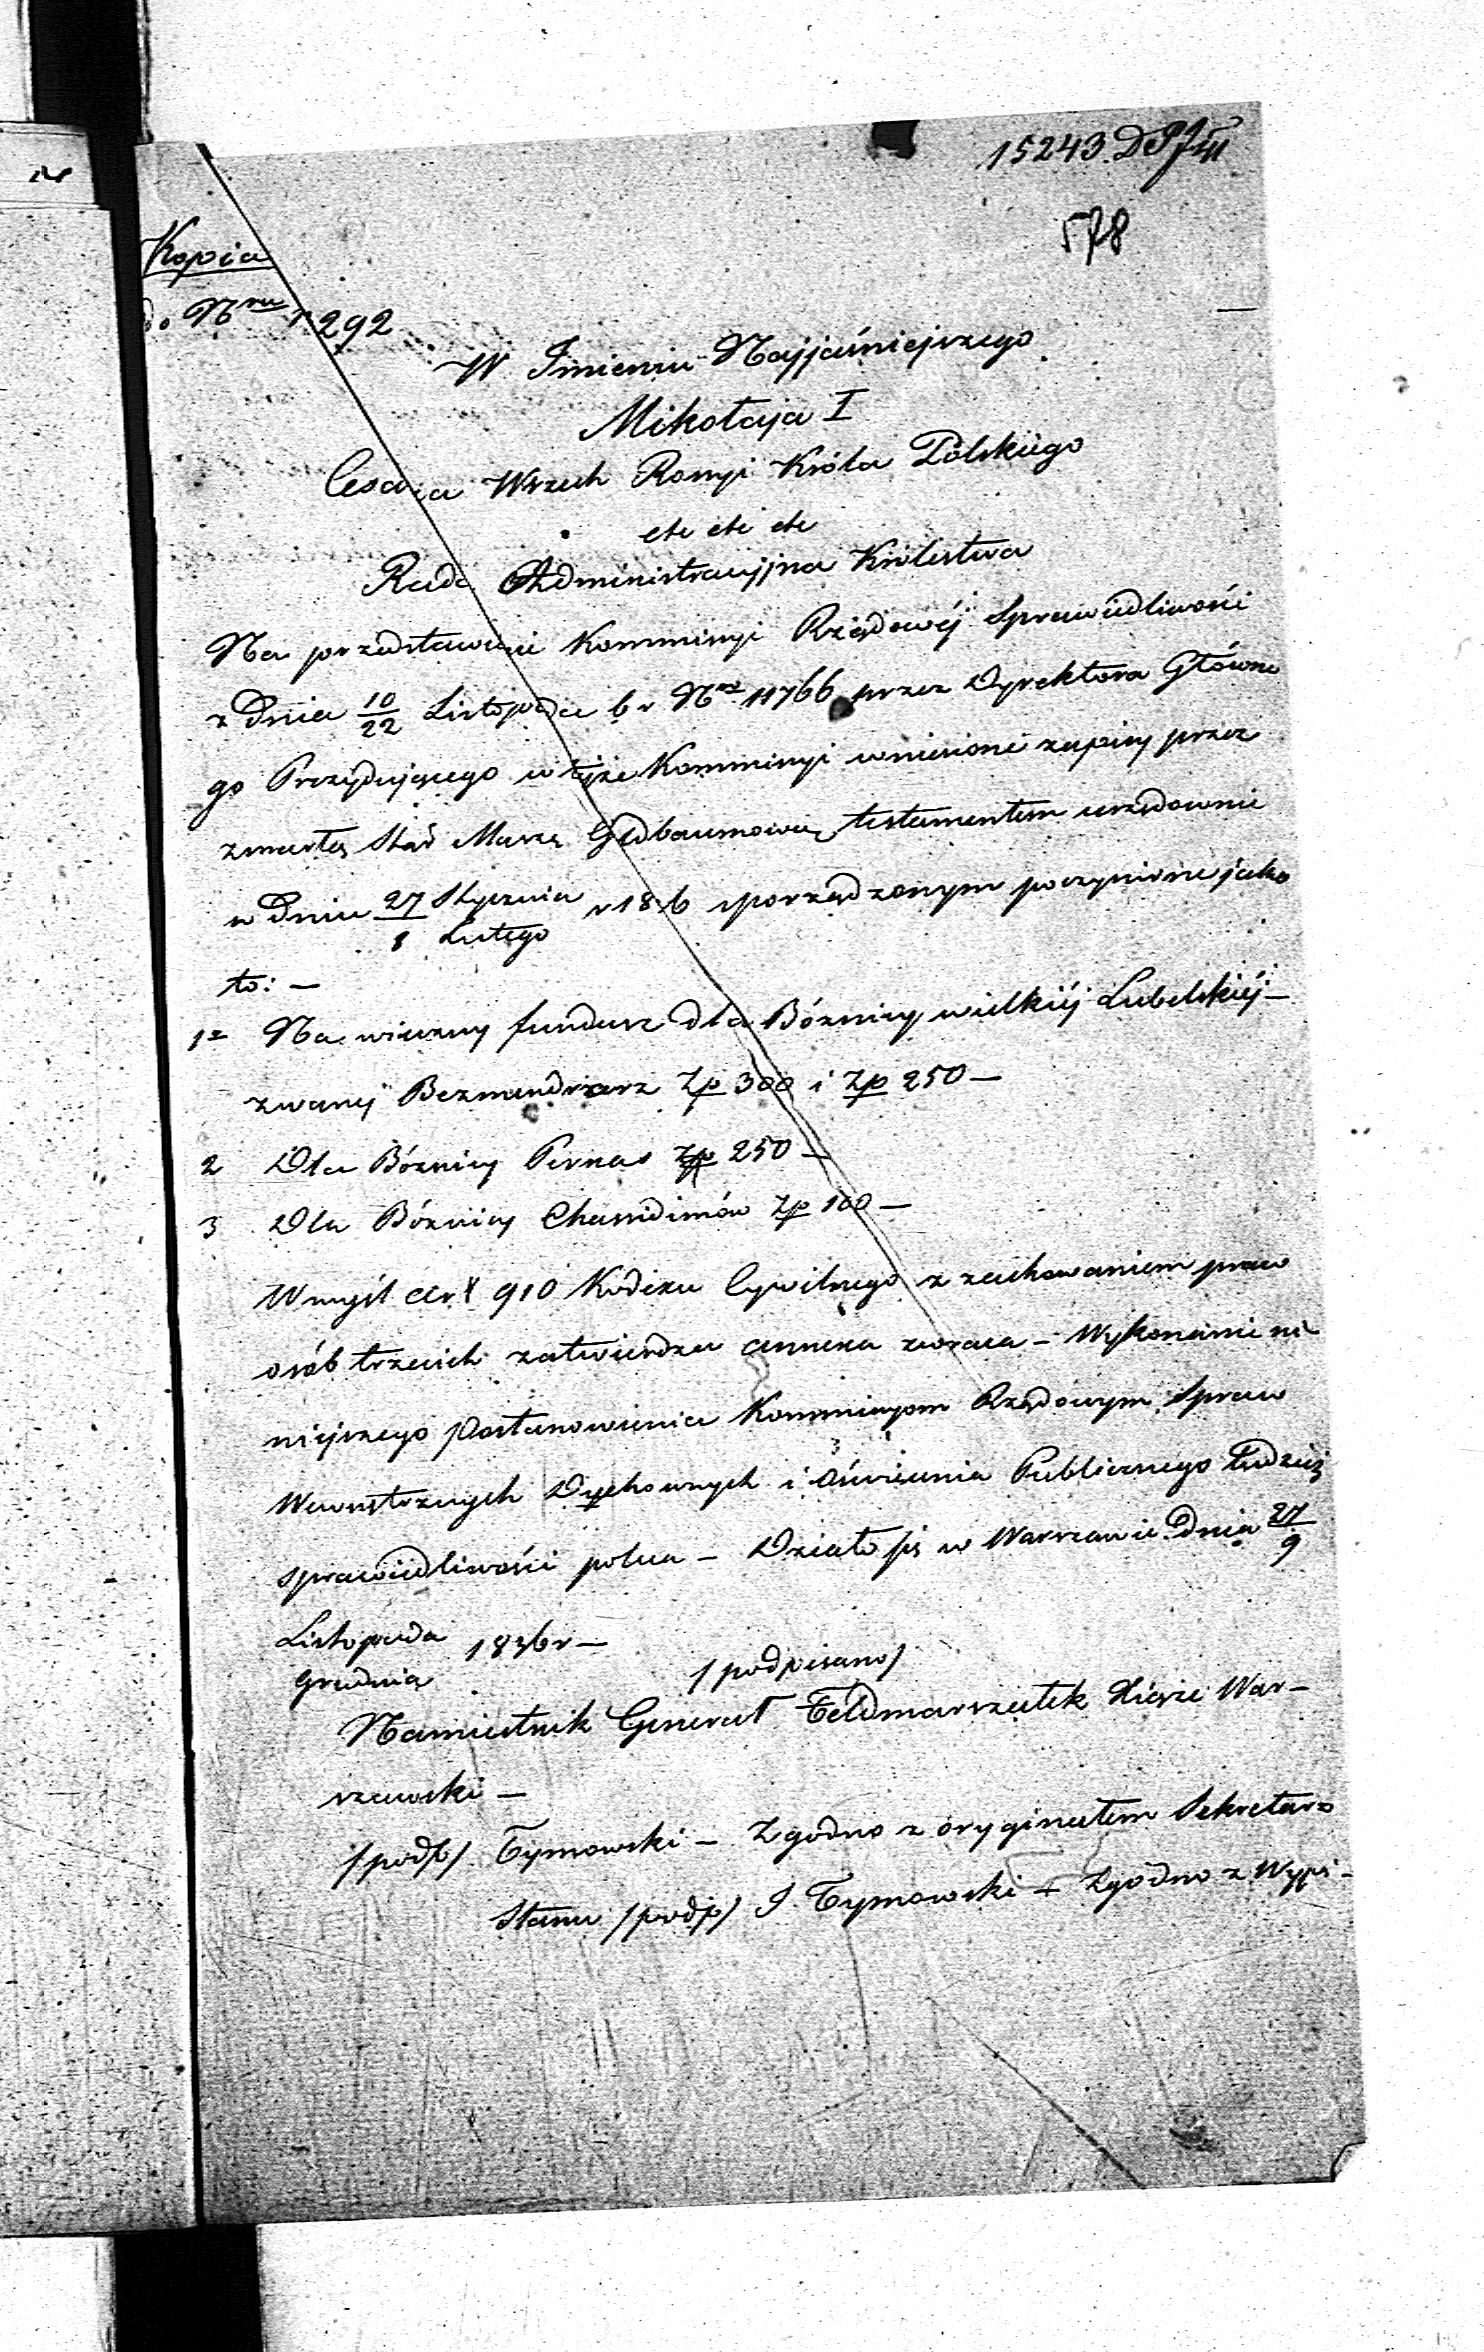 15243. D
578
Kopia
do Nru 1292
W Imieniu Najjaśniejszego
Mikołaja I
Cesarza Wszech Rossyi Króla Polskiego
etc etc etc
Rada Administracyjna Królestwa
Na przedstawienie Kommissyi Rządowéj Sprawiedliwości
z Dnia 10/22 Listopada b r Nro 11766 przez Dyrektora Główne
go Prezydującego w tejże Kommissyi wniesione zapisy przez
zmarłą Maszę testamentem urzędownie
w Dniu 27 Stycznia / 8 Lutego r 1836 sporządzonym poczynione jako
to: —
1 Na wieczny fundusz dla Bóżnicy wielkiéj Lubelskiéj —
zwanéj Zp 300 i Zp 250 —
2 Dla Bóżnicy Parnas Zp 250 —
3 Dla Bóżnicy Chassidimów Zp 100 —
W myśl Art 910 Kodexu Cywilnego z zachowaniem praw
osób trzecich zatwierdza annexa zwraca — Wykonanie ni
niejszego Postanowienia Kommissyom Rządowym Spraw
Wewnętrznych Duchownych i Oświecenia Publicznego tudzież
Sprawiedliwości poleca — Działo się w Warszawie Dnia 27/9
Listopada / Grudnia 1836 r —
/podpisano/
Namiestnik Generał Feldmarszałek Xiąże War—
szawski —
/podp/ Tymowski — Zgodno z oryginałem Sekretarz
Stanu /podp/ J. Tymowski — Zgodno z Wypi—